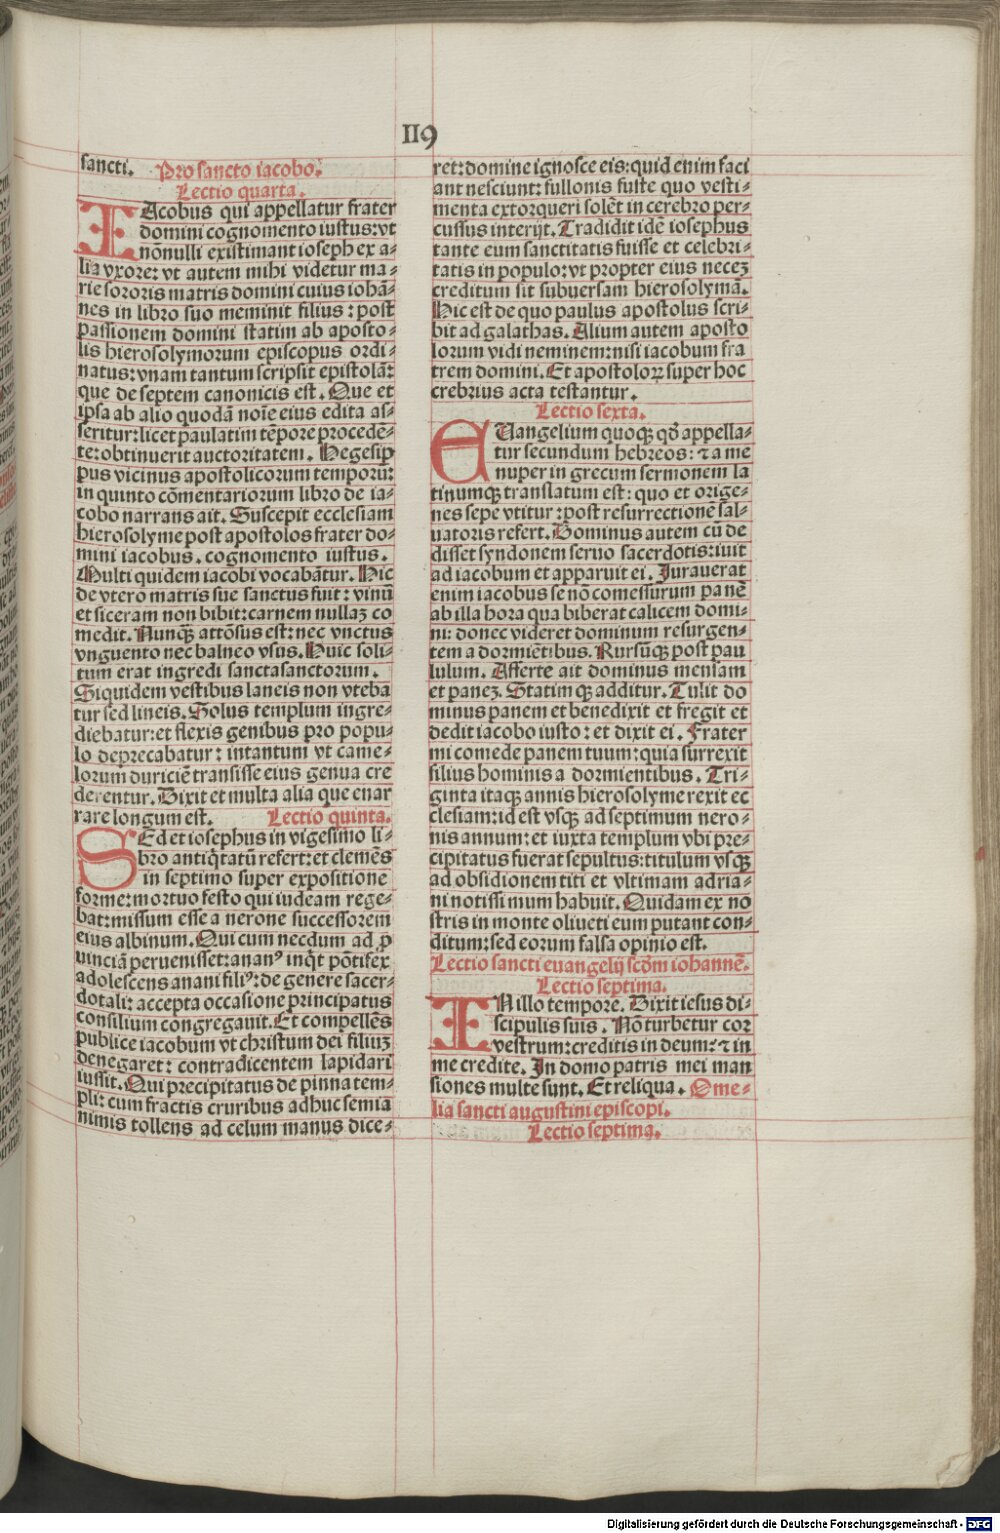 119
sancti. Pro sancto iacobo.
Lectio quarta.
IAcobus qui appellatur frater
domini cognomento iustus: vt
nõnulli existimant ioseph ex a⸗
lia vxore: vt autem mihi videtur ma⸗
rie sororis matris domini cuius iohã⸗
nes in libro suo meminit filius: post
passionem domini statim ab aposto⸗
lis hierosolymorum episcopus ordi⸗
natus: vnam tantum scripsit epistolã:
que de septem canonicis est. Que et
ipsa ab alio quodã noĩe eius edita as⸗
seritur: licet paulatim tẽpore procedẽ⸗
te: obtinuerit auctoritatem. Hegesip
pus vicinus apostolicorum temporum:
in quinto cõmentariorum libro de ia⸗
cobo narrans ait. Suscepit ecclesiam
hierosolyme post apostolos frater do⸗
mini iacobus. cognomento iustus.
Multi quidem iacobi vocabãtur. Hic
de vtero matris sue sanctus fuit: vinũ
et siceram non bibit: carnem nullaꝫ co
medit. Nunqꝫ attõsus est: nec vnctus
vnguento nec balneo vsus. Huic soli⸗
tum erat ingredi sancta sanctorum.
Siquidem vestibus laneis non vteba
tur sed lineis. Solus templum ingre⸗
diebatur: et flexis genibus pro popu⸗
lo deprecabatur: intantum vt came⸗
lorum duriciẽ transisse eius genua cre
derentur. Dixit et multa alia que enar
rare longum est. Lectio quinta.
SEd et iosephus in vigesimo li⸗
bro antiq̃tatũ refert: et clemẽs
in septimo super expositione
forme: mortuo festo qui iudeam rege⸗
bat: missum esse a nerone successorem
eius albinum. Qui cum necdum ad ꝓ
uinciã peruenisset: ananꝰ inq̃t põtifex
adolescens anani filiꝰ: de genere sacer⸗
dotali: accepta occasione principatus
consilium congregauit. Et compellẽs
publice iacobum vt christum dei filiuꝫ
denegaret: contradicentem lapidari
iussit. Qui precipitatus de pinna tem⸗
pli: cum fractis cruribus adhuc semia
nimis tollens ad celum manus dice⸗
ret: domine ignosce eis: quid enim faci
ant nesciunt: fullonis fuste quo vesti⸗
menta extorqueri solẽt in cerebro per⸗
cussus interijt. Tradidit idẽ iosephus
tante eum sanctitatis fuisse et celebri⸗
tatis in populo: vt propter eius neceꝫ
creditum sit subuersam hierosolymã.
Hic est de quo paulus apostolus scri⸗
bit ad galathas. Alium autem aposto
lorum vidi neminem: nisi iacobum fra
trem domini. Et apostoloꝝ super hoc
crebrius acta testantur.
Lectio sexta.
EUangelium quoqꝫ qđ appella⸗
tur secundum hebreos: ⁊ a me
nuper in grecum sermonem la
tinumqꝫ translatum est: quo et orige⸗
nes sepe vtitur: post resurrectionẽ sal⸗
uatoris refert. Dominus autem cũ de
disset syndonem seruo sacerdotis: iuit
ad iacobum et apparuit ei. Jurauerat
enim iacobus se nõ comessurum panẽ
ab illa hora qua biberat calicem domi⸗
ni: donec videret dominum resurgen⸗
tem a dormiẽtibus. Rursũqꝫ post pau
lulum. Afferte ait dominus mensam
et paneꝫ. Statim qꝫ additur. Tulit do
minus panem et benedixit et fregit et
dedit iacobo iusto: et dixit ei. Frater
mi comede panem tuum: quia surrexit
filius hominis a dormientibus. Tri⸗
ginta itaqꝫ annis hierosolyme rexit ec
clesiam: id est vsqꝫ ad septimum nero⸗
nis annum: et iuxta templum vbi pre⸗
cipitatus fuerat sepultus: titulum vsqꝫ
ad obsidionem titi et vltimam adria⸗
ni notissimum habuit. Quidam ex no
stris in monte oliueti eum putant con⸗
ditum: sed eorum falsa opinio est.
Lectio sancti euangelij scđm iohannẽ.
Lectio septima.
IN illo tempore. Dixit iesus di⸗
scipulis suis. Nõ turbetur cor
vestrum: creditis in deum: ⁊ in
me credite. In domo patris mei man
siones multe sunt. Et reliqua. Ome⸗
lia sancti augustini episcopi.
Lectio septima.
Digitalisierung gefördert durch die Deutsche Forschungsgemeinschaft - DFG